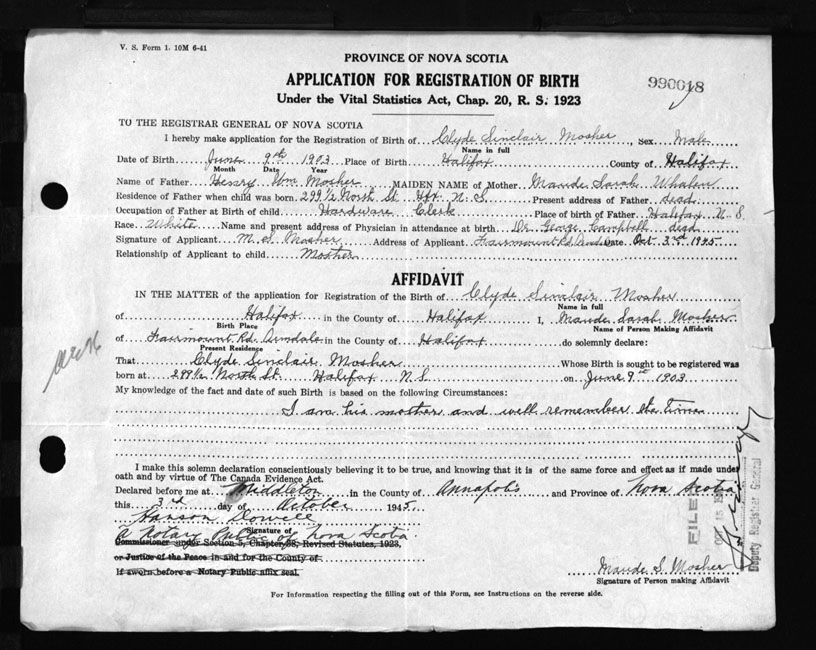 V. S. Form 1. 10M 6-41
PROVINCE OF NOVA SCOTIA
APPLICATION FOR REGISTRATION OF BIRTH
990018
Under the Vital Statistics Act, Chap. 20, R. S. 1923
TO THE REGISTRAR GENERAL OF NOVA SCOTIA
I hereby make application for the Registration of Birth of Clyde Sinclair Mosher, Sex Male
Name in full
Date of Birth June 9th 1903 Place of Birth Halifax County of Halifax
Month Date Year
Name of Father Henry Wm Mosher MAIDEN NAME of Mother Maude Sarah Whalen
Residence of Father when child was born 299½ North St Hfx N.S. Present address of Father dead
Occupation of Father at Birth of child Hardware Clerk Place of birth of Father Halifax N S
Race White Name and present address of Physician in attendance at birth Dr George Campbell dead
Signature of Applicant M. S. Mosher Address of Applicant Fairmount Rd Date Oct 3rd 1945
Relationship of Applicant to child Mother
AFFIDAVIT
IN THE MATTER of the application for Registration of the Birth of Clyde Sinclair Mosher
Name in full
of Halifax in the County of Halifax I, Maude Sarah Mosher
Birth Place Name of Person Making Affidavit
of Fairmount Rd. Armdale in the County of Halifax do solemnly declare:
Present Residence
That Clyde Sinclair Mosher Whose Birth is sought to be registered was
born at 299½ North St. Halifax N.S. on June 9th 1903
My knowledge of the fact and date of such Birth is based on the following Circumstances:
I am his mother and well remember the time
I make this solemn declaration conscientiously believing it to be true, and knowing that it is of the same force and effect as if made under
oath and by virtue of The Canada Evidence Act.
Declared before me at Middleton in the County of Annapolis and Province of Nova Scotia
this 3rd day of October 1945
Signature of
A Notary Public of Nova Scotia
Commissioner under Section 5, Chapter 38, Revised Statutes, 1923,
or Justice of the Peace in and for the County of
If sworn before a Notary Public affix seal.
Maude S. Mosher
Signature of Person making Affidavit
For Information respecting the filling out of this Form, see Instructions on the reverse side.
FILED
OCT 15
Deputy Registrar General